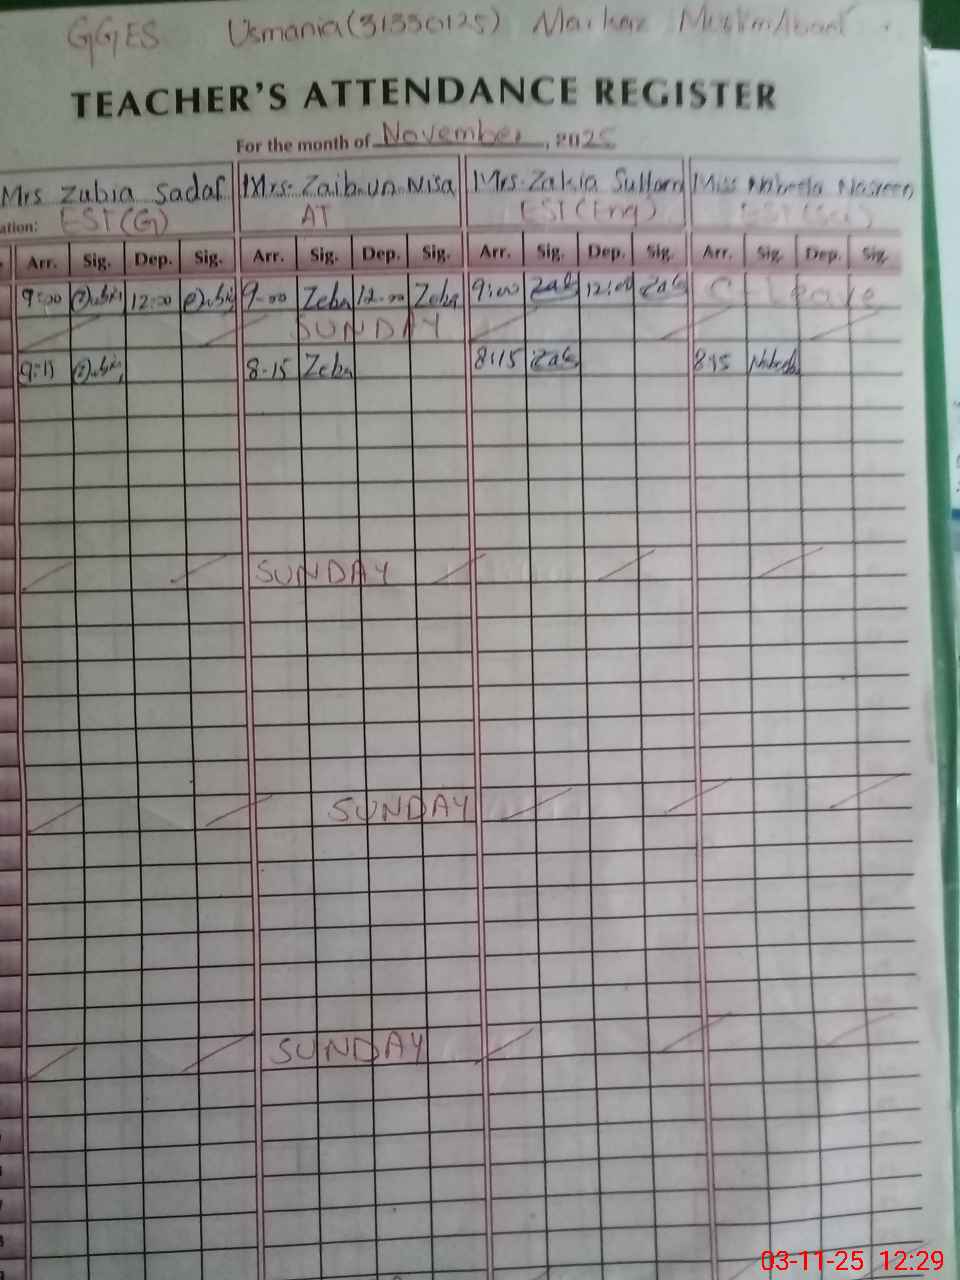 GGES Usmania (31330125) Markaz MuslimAbad
TEACHER'S ATTENDANCE REGISTER
For the month of November, 2025
Mrs Zubia Sadaf Mrs. Zaib-un-Nisa Mrs. Zakia Sultana Miss Nabeela Nasreen
ation: EST(G) AT EST(Eng) EST(Sci)
Arr. Sig. Dep. Sig. Arr. Sig. Dep. Sig. Arr. Sig. Dep. Sig. Arr. Sig. Dep. Sig.
9:00 12:00 9-00 Zeba 12-00 Zeba 9:00 Zak 12:00 Zak C-Leave
SUNDAY
8-15 Zeba 8:15 Zak 8:15
SUNDAY
SUNDAY
SUNDAY
03-11-25 12:29